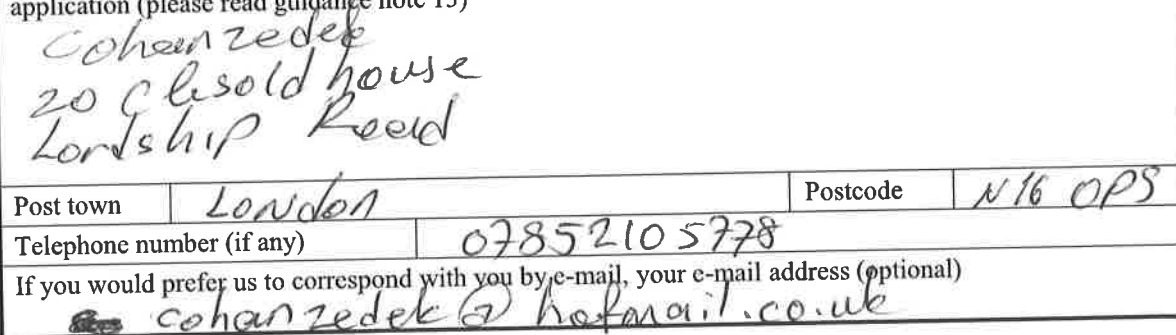 application (please read guidance note 13)
Cohanzedek
20 Clisold house
Lordship Road
Post town London Postcode N16 0PS
Telephone number (if any) 07852105778
If you would prefer us to correspond with you by e-mail, your e-mail address (optional)
cohanzedek@hotmail.co.uk